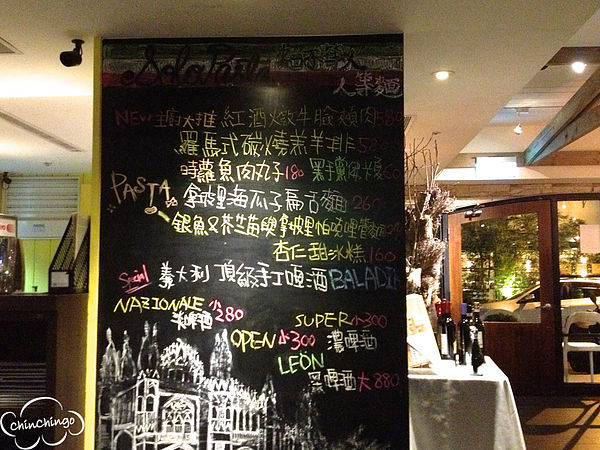 Solo Pasta
人等麵
NEW 主廚大推 紅酒燉牛臉頰肉580
羅馬式碳燒羔羊排580
時蘿魚肉丸子180
PASTA 拿坡里海瓜子扁舌麵 260
銀魚
拿坡里
杏仁甜冰糕 160
Special 義大利頂級手工啤酒 BALADIN
NAZIONALE 小280
淡啤酒
SUPER 小300
OPEN 小300 濃啤酒
LEÖN
黑啤酒 大880
chinchingo